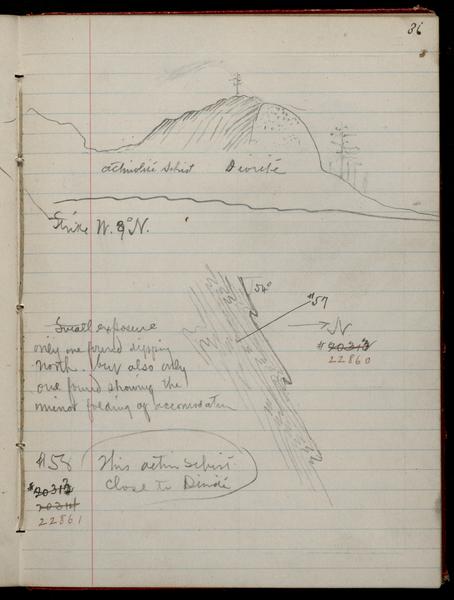 36
actinolite Schist Diorite
Strike W. 9° N.
54°
#57
N
Small exposure
only one found dipping
north. but also only
one found showing the
minor folding of accomodation
# 20313
22860
#58 This actin Schist
close to Diorite
# 20313
20314
22861